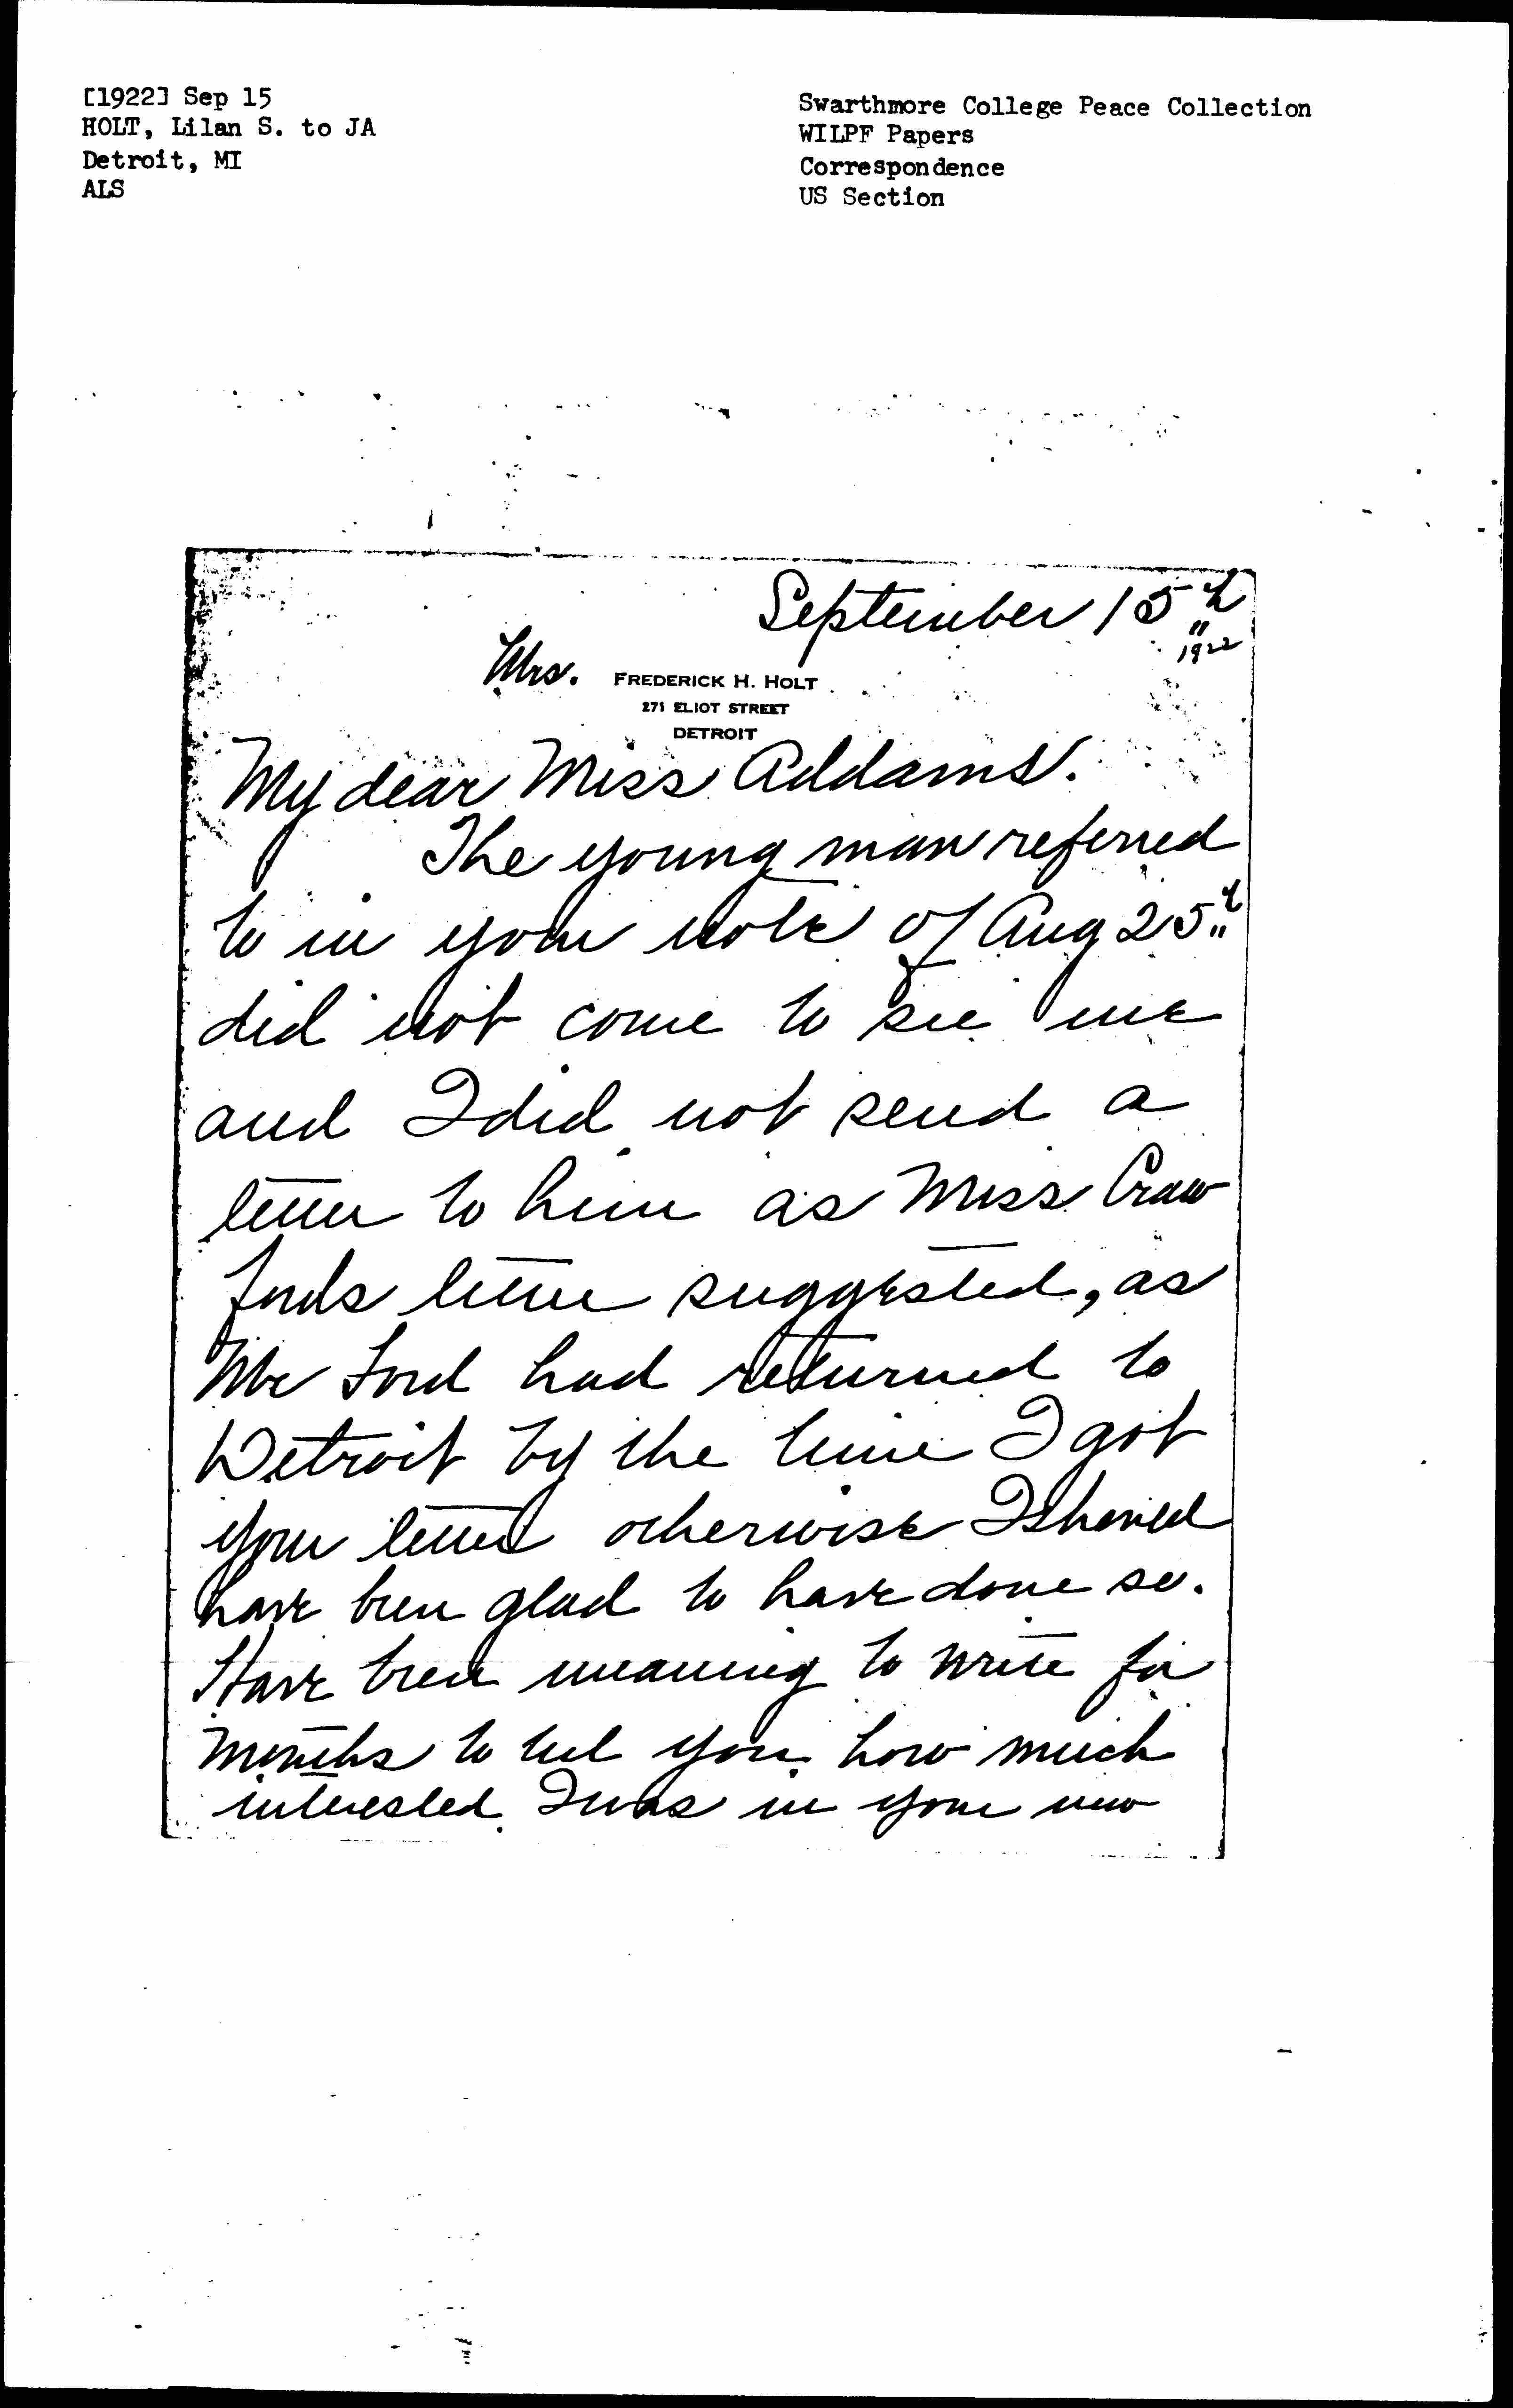 [1922] Sep 15
HOLT, Lilan S. to JA
Detroit, MI
ALS
Swarthmore College Peace Collection
WILPF Papers
Correspondence
US Section
September 15th
1922
Mrs. FREDERICK H. HOLT
271 ELIOT STREET
DETROIT
My dear Miss Addams.
The young man referred
to in your note of Aug 25th
did not come to see me
and I did not send a
letter to him as Miss Craw
fords letter suggested, as
Mr Ford had returned to
Detroit by the time I got
your letter otherwise I should
have been glad to have done so.
Have been meaning to write for
months to tell you how much
interested I was in your new